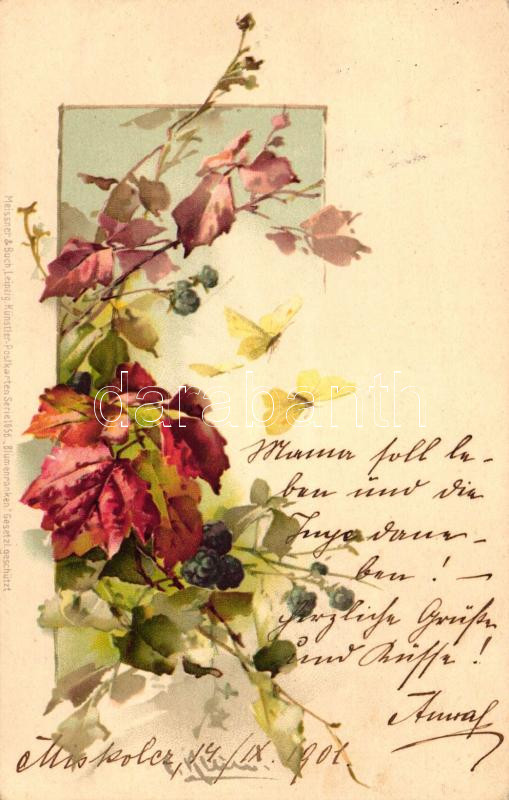 Meissner & Buch, Leipzig. Künstler-Postkarten Serie 1056 „Blumenranken“ Gesetzl. geschützt
darabanth
Mama soll le-
ben und die
dane-
ben! —
Herzliche Grüße
und Küsse!
Miskolcz, 14/IX. 1901.